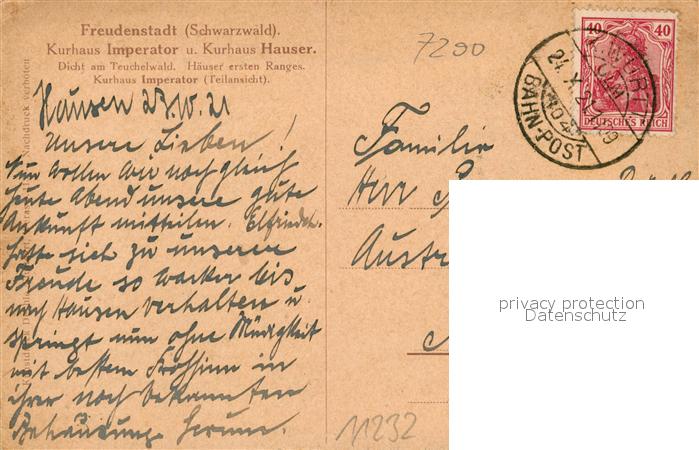 Freudenstadt (Schwarzwald).
Kurhaus Imperator u. Kurhaus Hauser.
Dicht am Teuchelwald. Häuser ersten Ranges.
Kurhaus Imperator (Teilansicht).
7290
40 40
DEUTSCHES REICH
ULM
24.X.21
BAHN-POST
Hausen 23.IV.21
Unsere Lieben!
Nun wollen wir noch gleich
heute Abend unsere gute
Ankunft mitteilen. Elfriedch.
hatte sich zu unserer
Freude so wacker bis
nach Hausen verhalten u.
springt nun ohne Müdigkeit
mit bestem Frohsinn in
ihrer noch bekannten
Behausung herum.
Familie
Herr
Austr
11232
Nachdruck verboten
privacy protection
Datenschutz